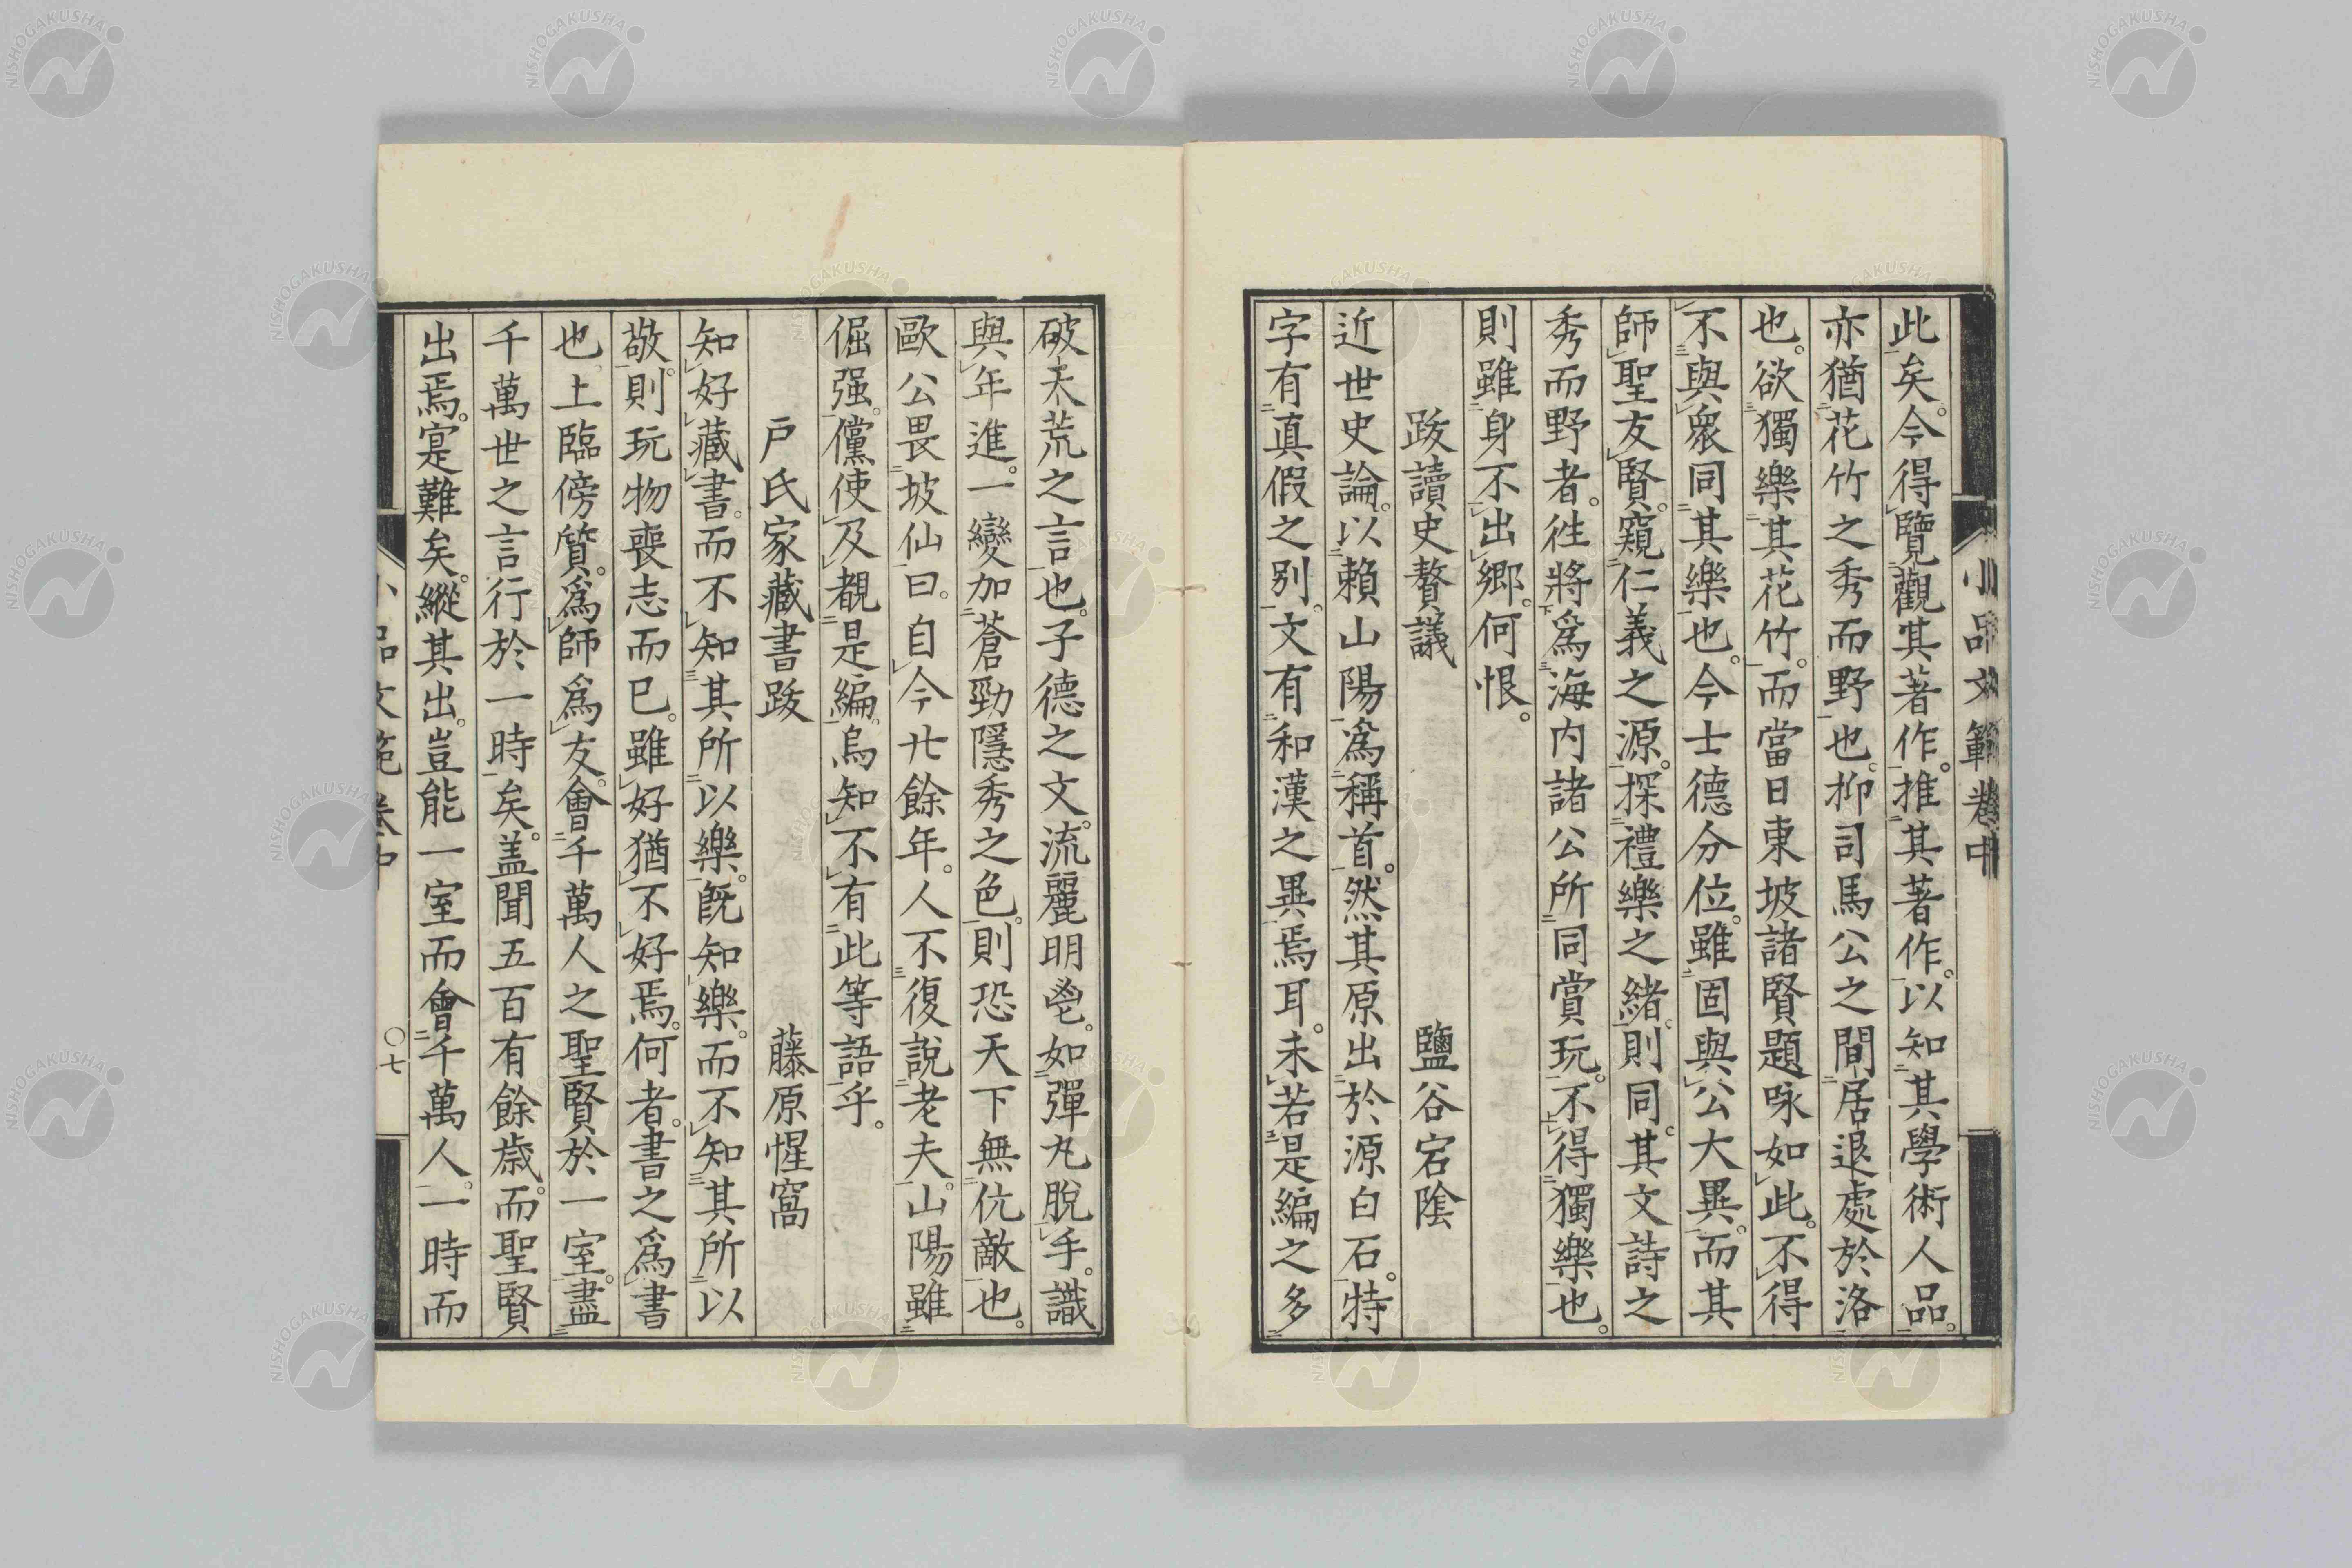 小品文範卷中
此矣。今得覽觀其著作。推其著作。以知其學術人品。
亦猶花竹之秀而野也。抑司馬公之間居退處於洛
也。欲獨樂其花竹。而當日東坡諸賢題咏如此。不得
不與衆同其樂也。今士德分位。雖固與公大異。而其
師聖友賢。窺仁義之源。探禮樂之緒。則同。其文詩之
秀而野者。徃將爲海内諸公所同賞玩。不得獨樂也。
則雖身不出鄉。何恨。
跋讀史贅議 鹽谷宕陰
近世史論。以賴山陽爲稱首。然其原出於源白石。特
字有真假之别。文有和漢之異焉耳。未若是編之多
破天荒之言也。子德之文。流麗明鬯。如彈丸脫手。識
與年進。一變加蒼勁隱秀之色。則恐天下無伉敵也。
歐公畏坡仙曰。自今廿餘年。人不復說老夫。山陽雖
倔强。儻使及覩是編。烏知不有此等語乎。
戸氏家藏書跋 藤原惺窩
知好藏書。而不知其所以樂。既知樂。而不知其所以
敬。則玩物喪志而已。雖好猶不好焉。何者。書之爲書
也。上臨傍質。爲師爲友。會千萬人之聖賢於一室。盡
千萬世之言行於一時矣。盖聞五百有餘歲。而聖賢
出焉。寔難矣。縱其出。豈能一室而會千萬人。一時而
小品文範卷中 〇七
NISHOGAKUSHA